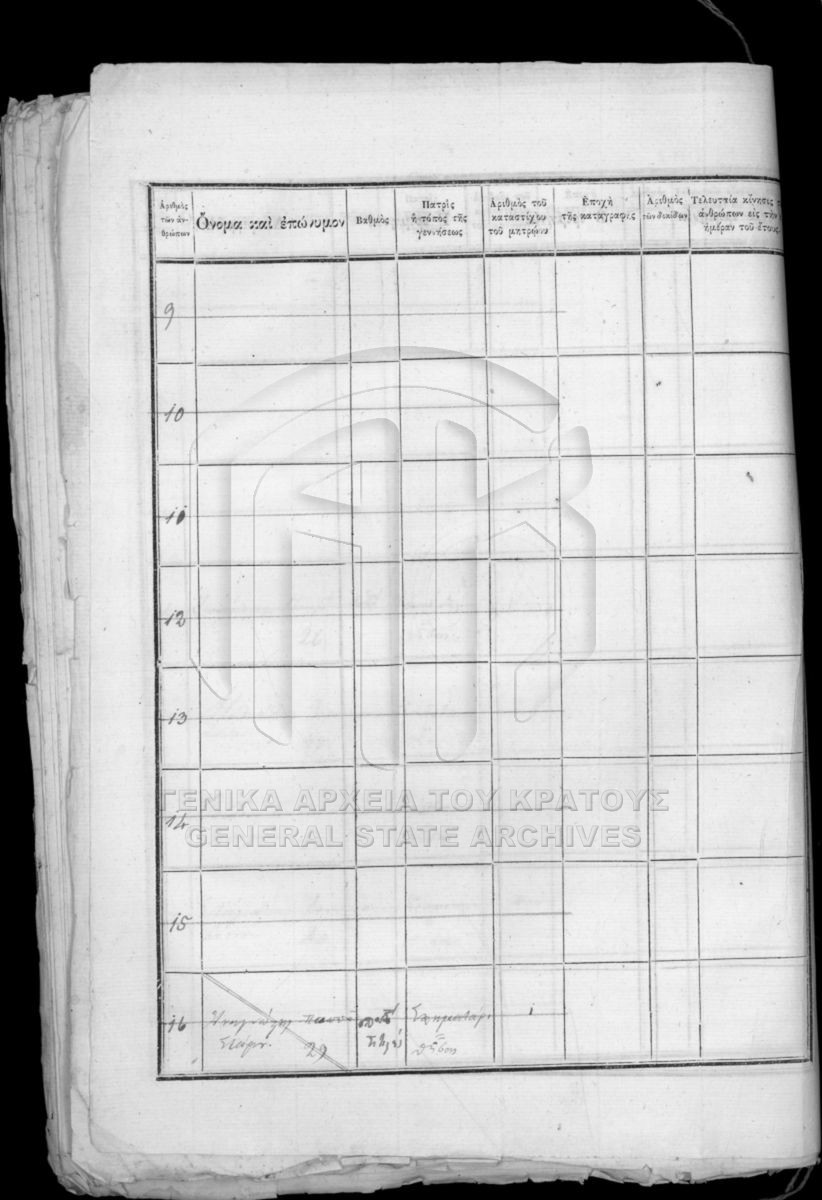 Ἀριθμὸς
τῶν ἀν-
θρώπων
Ὄνομα καὶ ἐπώνυμον
Βαθμὸς
Πατρὶς
ἢ τόπος τῆς
γεννήσεως
Ἀριθμὸς τοῦ
καταστίχου
τοῦ μητρώου
Ἐποχὴ
τῆς καταγραφῆς
Ἀριθμὸς
τῶν διαίδων
Τελευταία κίνησις
ἀνθρώπων εἰς τὴν
ἡμέραν τοῦ ἔτους
9
10
11
12
13
14
ΓΕΝΙΚΑ ΑΡΧΕΙΑ ΤΟΥ ΚΡΑΤΟΥΣ
GENERAL STATE ARCHIVES
15
16 Σχηματάρι
29 Θήβαι